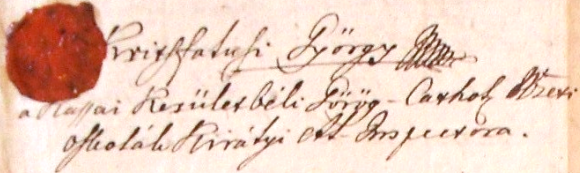 György
a Kassai Kerületbéli Görög-Cathol.
oskolák Királyi Al-Inspectora.